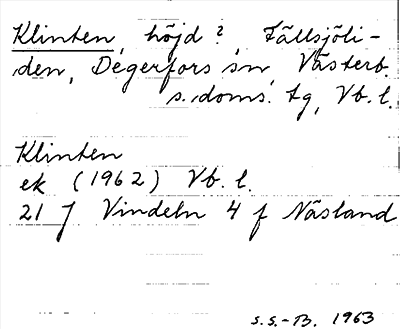 Klinten, höjd?, Fällsjöli-
den, Degerfors sn, Västerb.
s. doms. tg, Vb. l.
Klinten
ek (1962) Vb. l.
21 J Vindeln 4 f Näsland
S.S.-B. 1963